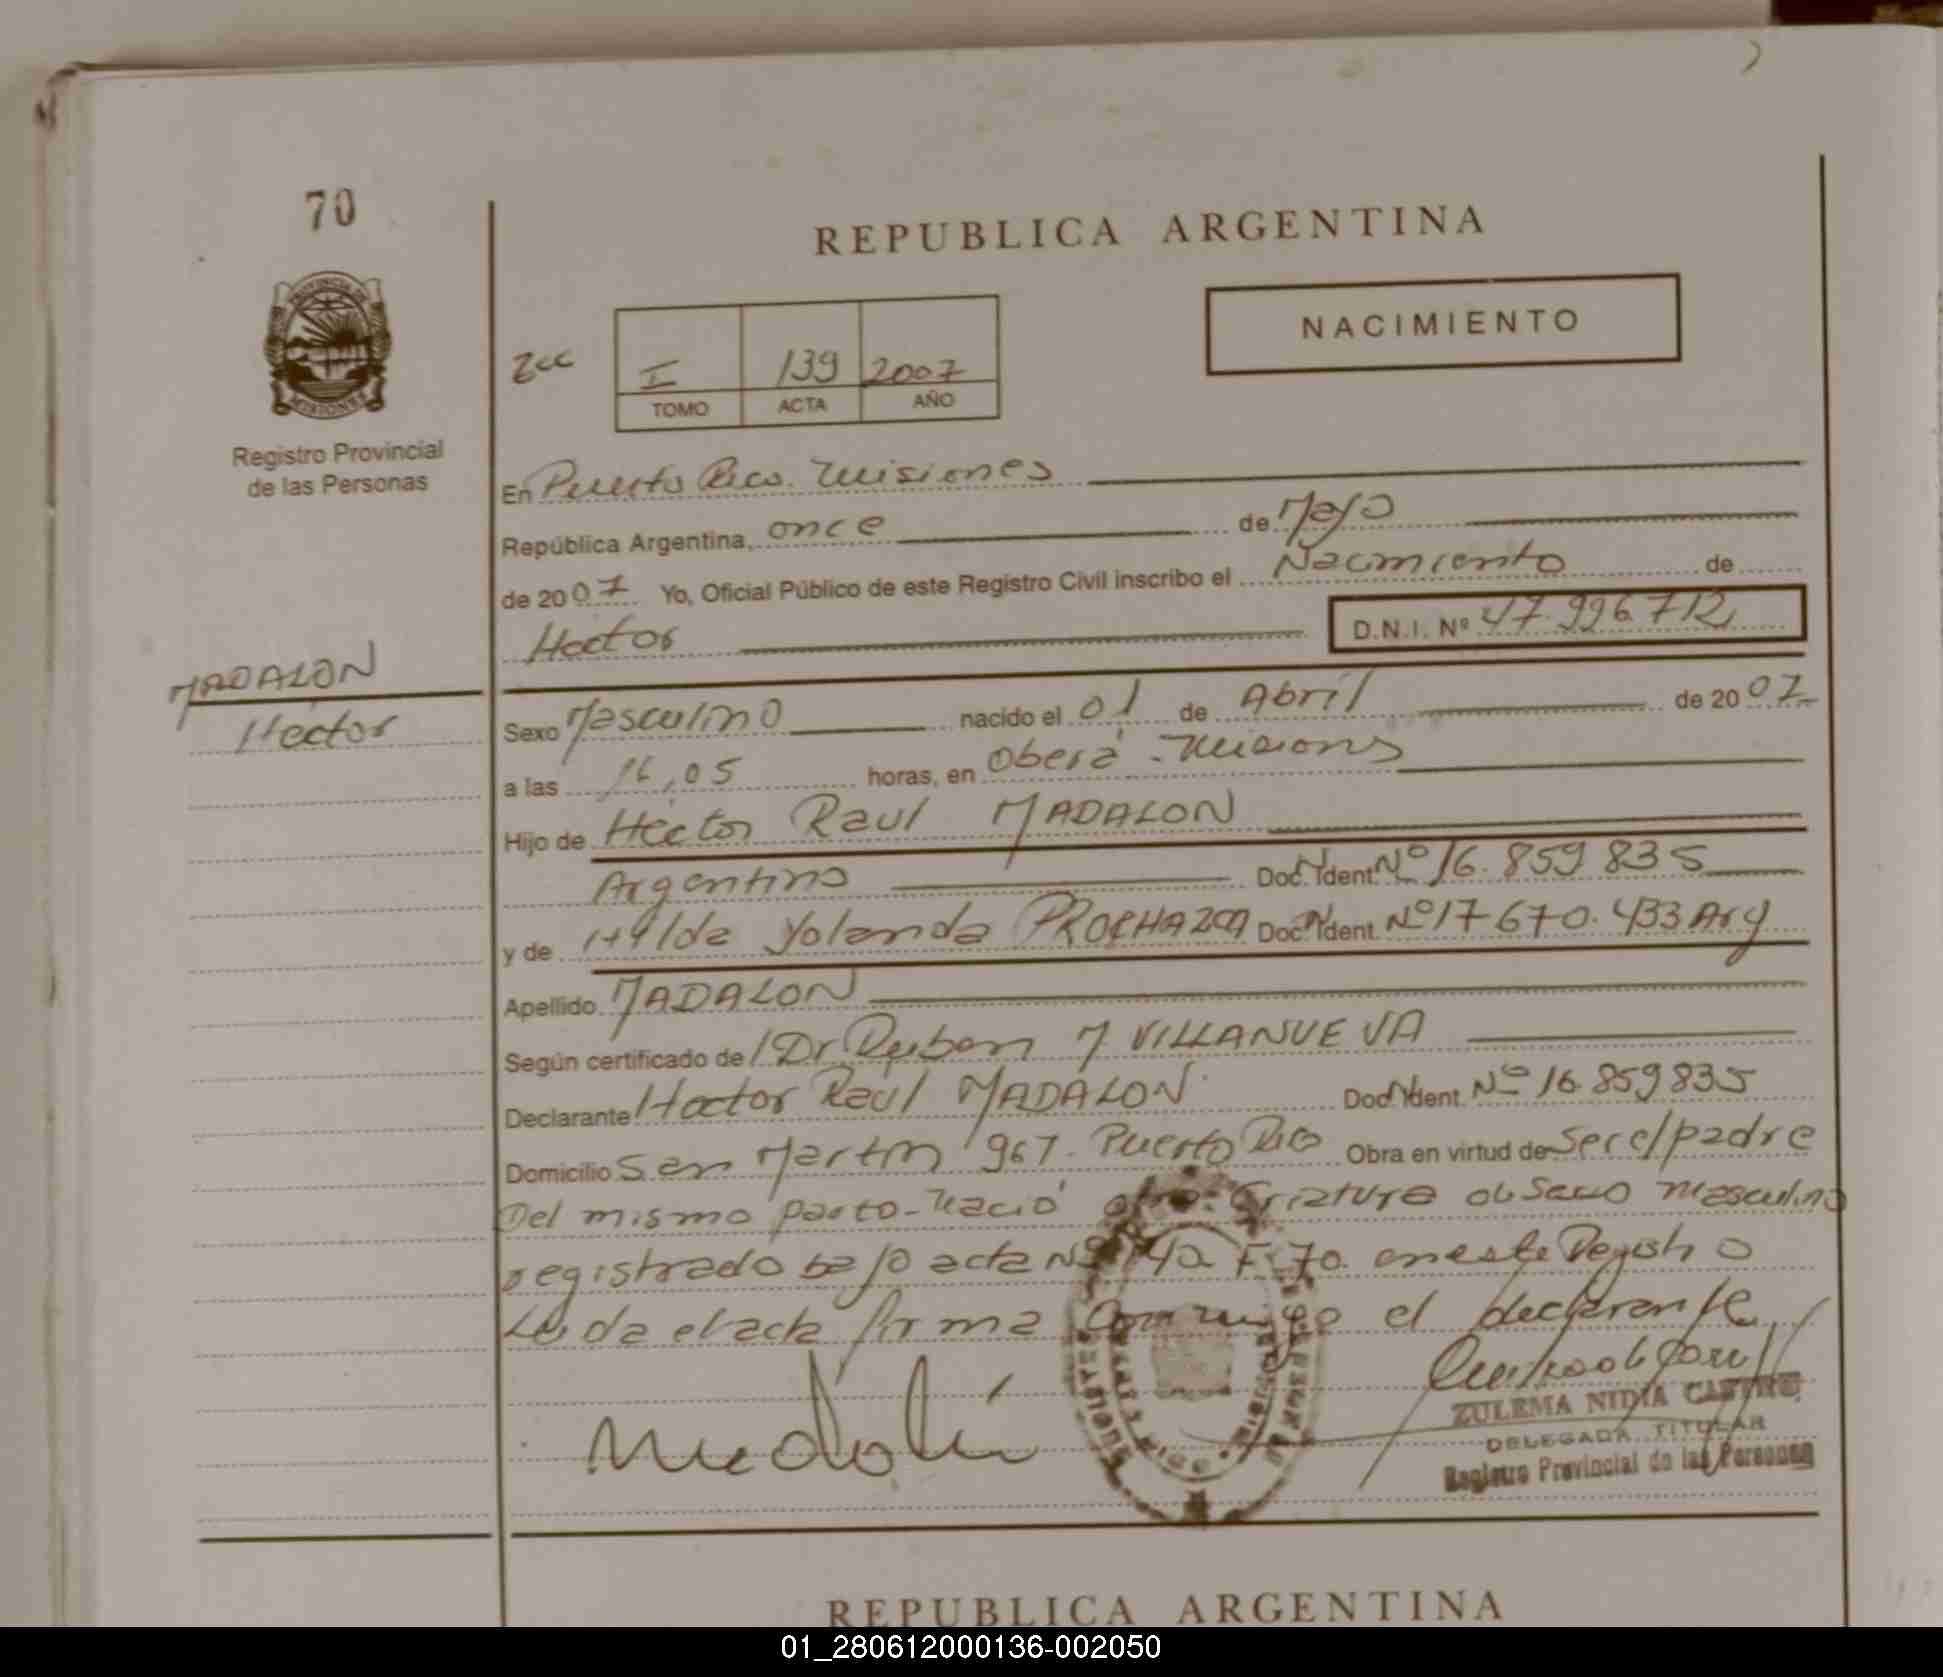 70
REPUBLICA ARGENTINA
PROVINCIA DE
MISIONES
NACIMIENTO
I 139 2007
TOMO ACTA AÑO
Registro Provincial
de las Personas
En Puerto Rico. Misiones
República Argentina, once de Mayo
de 2007 Yo, Oficial Público de este Registro Civil inscribo el Nacimiento de
Hector D.N.I. Nº 47.996.712
MADALON
Hector
Sexo Masculino nacido el 01 de Abril de 2007
a las 16,05 horas, en Oberá - Misiones
Hijo de Hector Raul MADALON
Argentino Doc. Ident. Nº 16.859.835
y de Hylda Yolanda PROCHAZKA Doc. Ident. Nº 17.670.433 Arg
Apellido MADALON
Según certificado de Dr Ruben M VILLANUEVA
Declarante Hector Raul MADALON Doc. Ident. Nº 16.859835
Domicilio San Martin 967. Puerto Rico Obra en virtud de ser el padre
Del mismo parto - Nació otra criatura de sexo masculino
registrado bajo acta Nº 140 F. 70. en este Registro
Leida el acta firma conmigo el declarante
ZULEMA NIDIA CASTRO
DELEGADA TITULAR
Registro Provincial de las Personas
REPUBLICA ARGENTINA
01_280612000136-002050